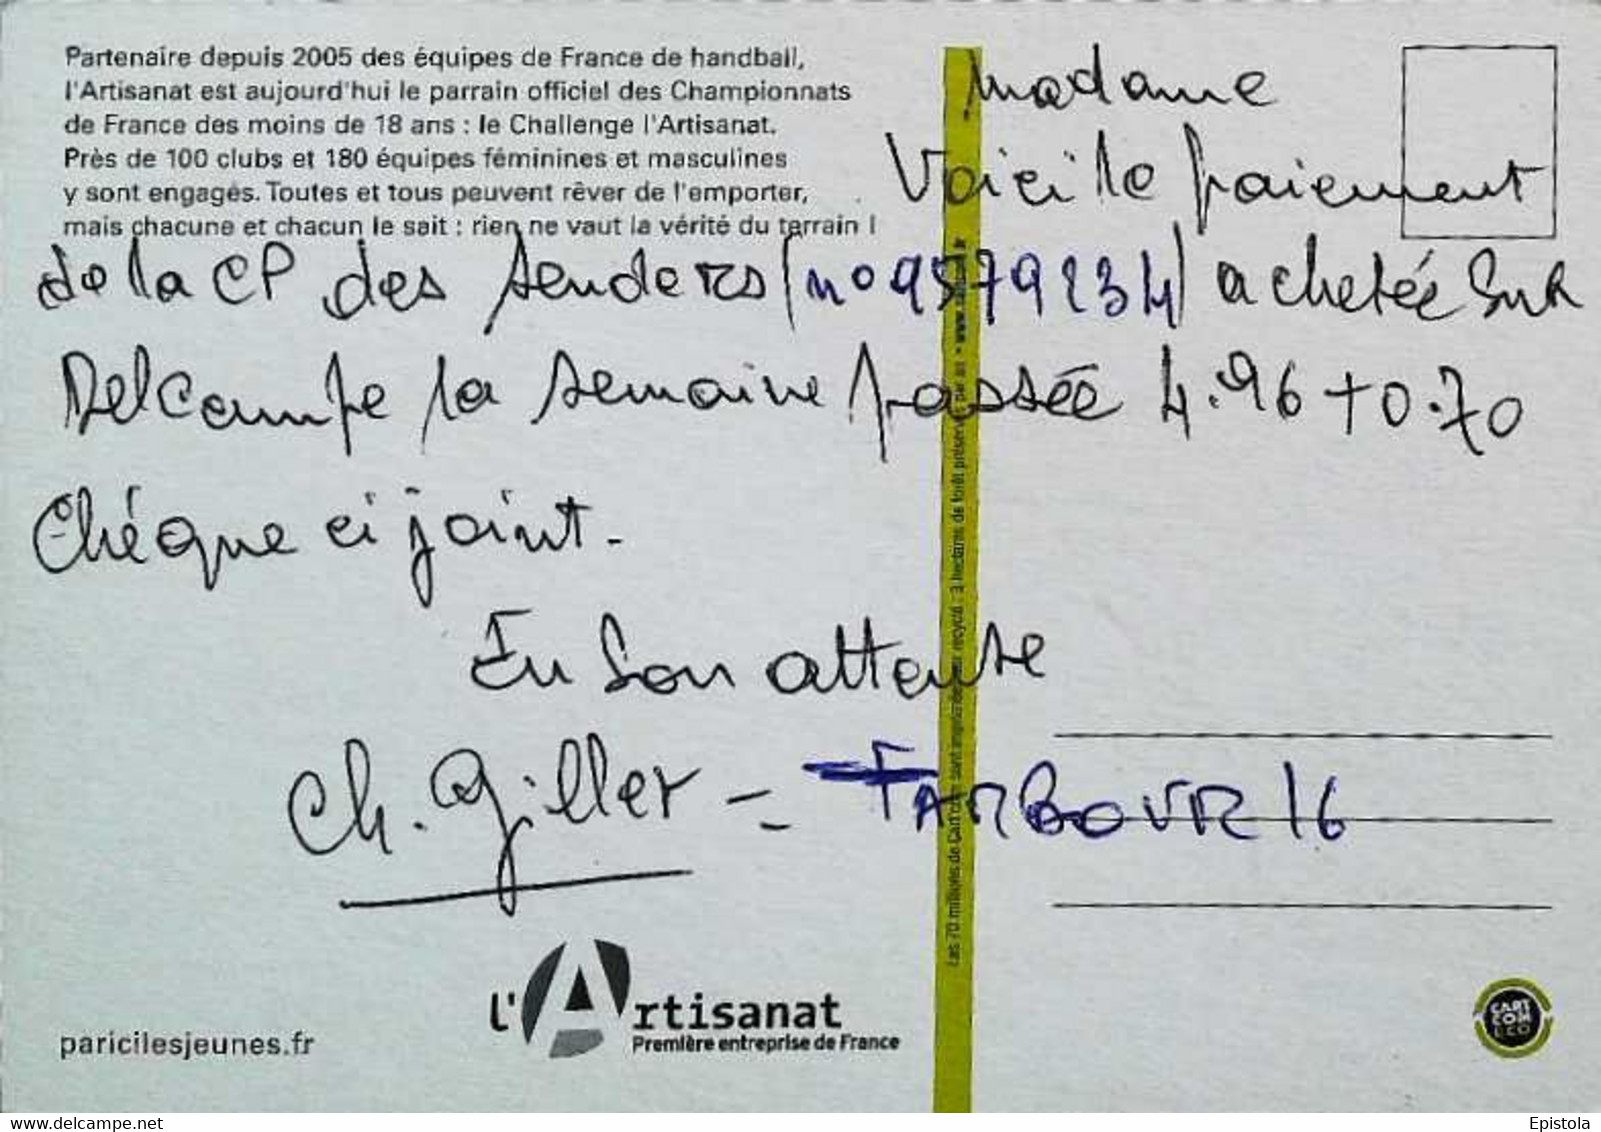 Partenaire depuis 2005 des équipes de France de handball,
l'Artisanat est aujourd'hui le parrain officiel des Championnats
de France des moins de 18 ans : le Challenge l'Artisanat.
Près de 100 clubs et 180 équipes féminines et masculines
y sont engagés. Toutes et tous peuvent rêver de l'emporter,
mais chacune et chacun le sait : rien ne vaut la vérité du terrain !
Madame
Voici le paiement
de la CP des Senders (n° 9579234) achetée sur
Delcampe la semaine passée 4.96 + 0.70
Chéque ci joint.
En son attente
Ch. Gillet = TAMBOUR 16
l'Artisanat
Première entreprise de France
paricilesjeunes.fr
CART
COM
ECO
delcampe.net
Epistola